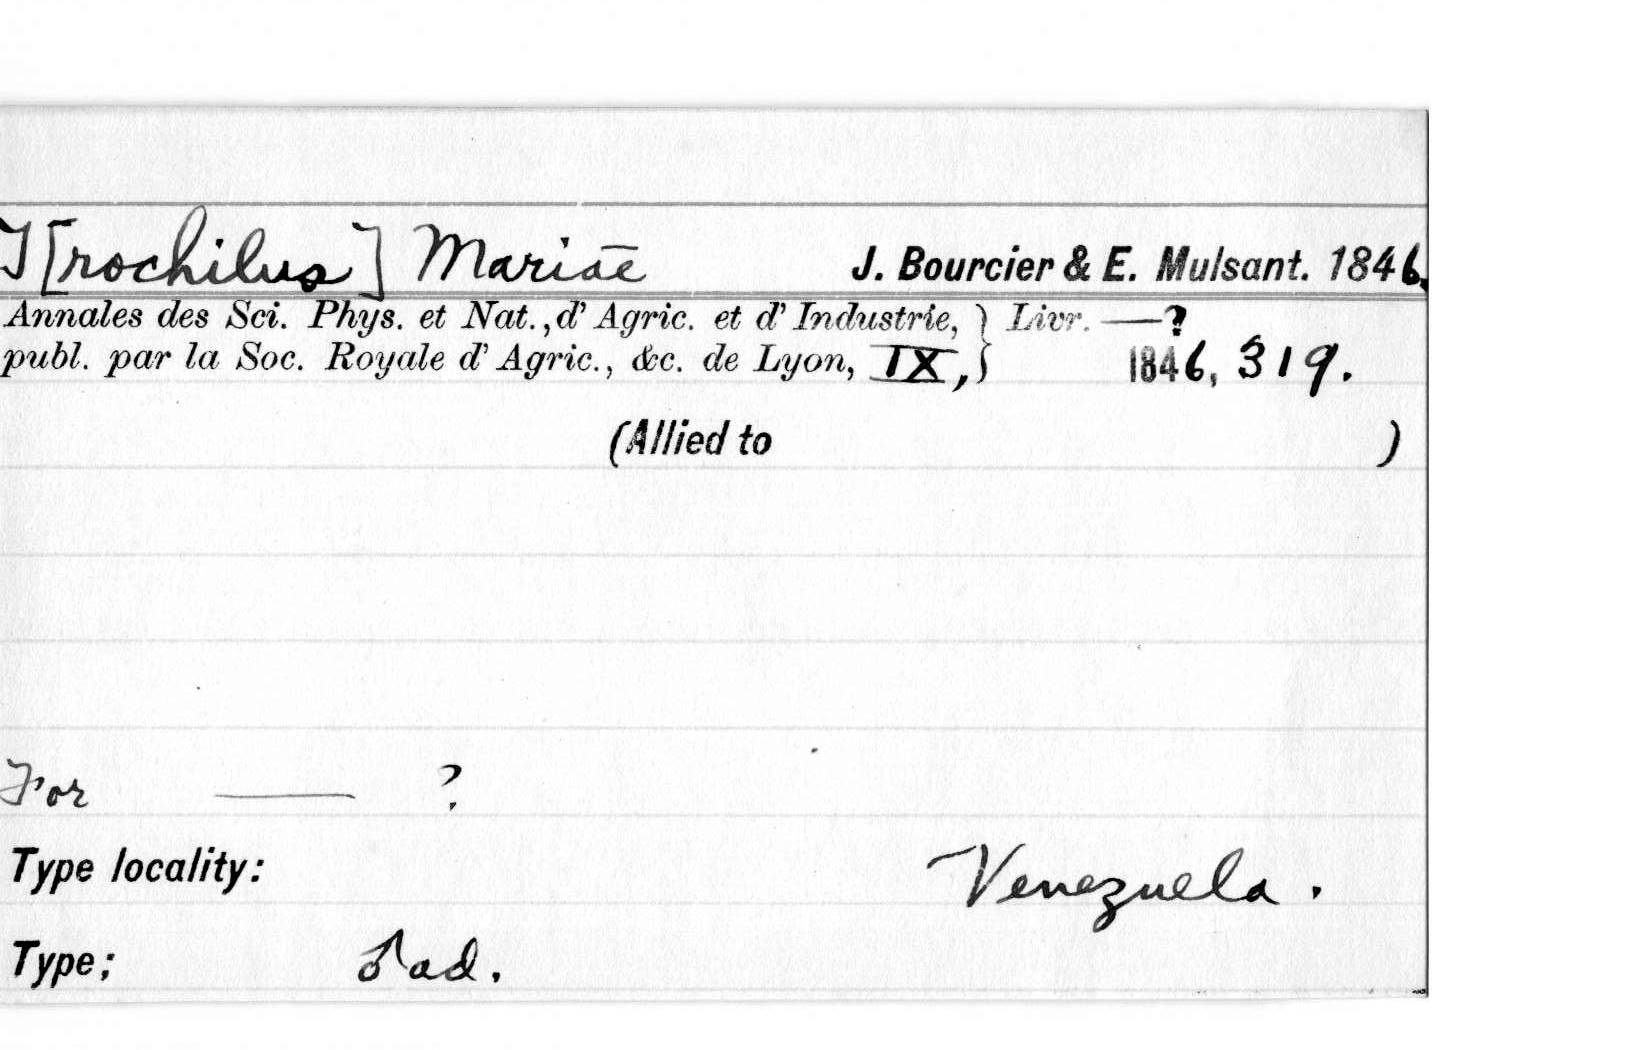 T[rochilus] Mariae J. Bourcier & E. Mulsant. 1846.
Annales des Sci. Phys. et Nat., d' Agric. et d' Industrie, } Livr. —?
publ. par la Soc. Royale d' Agric., &c. de Lyon, IX, } 1846, 319.
(Allied to )
For — ?
Type locality: Venezuela.
Type; ♂ ad.